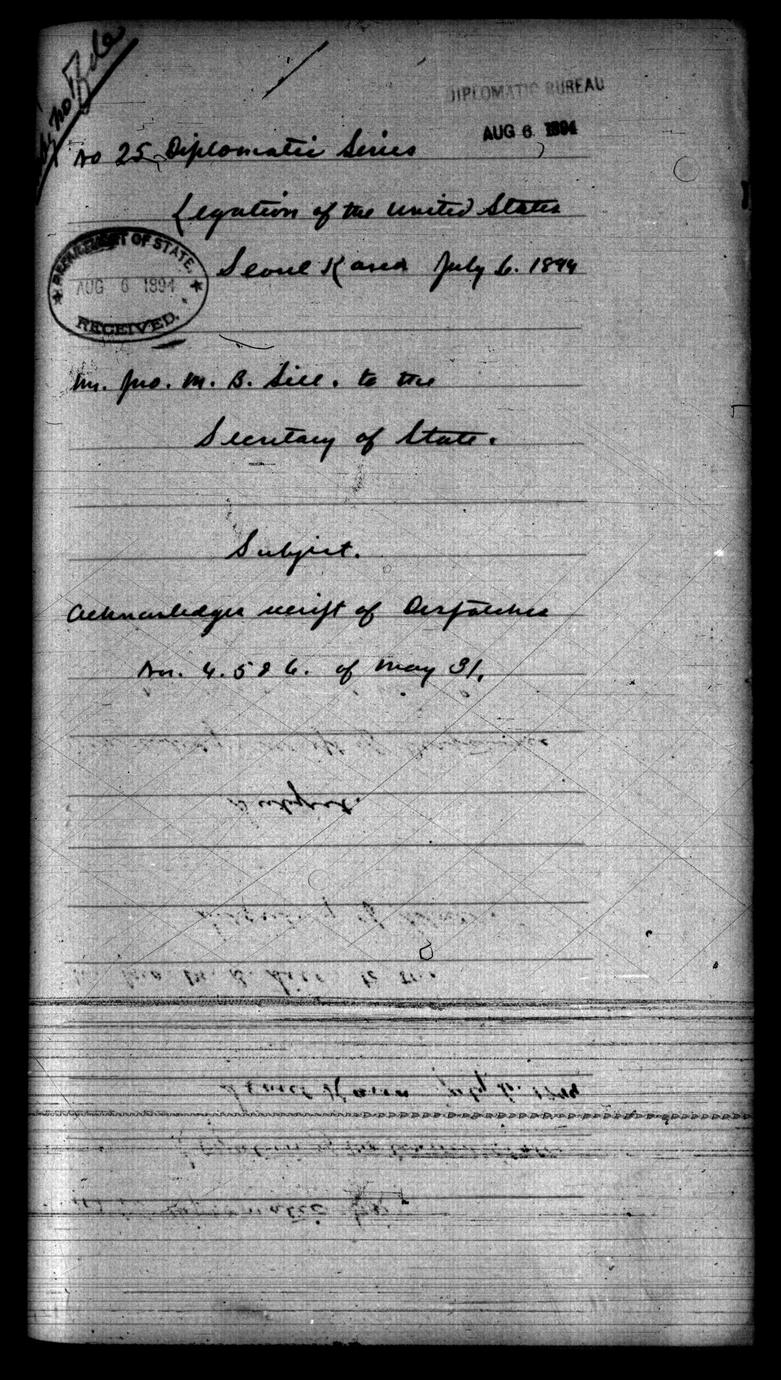 DIPLOMATIC BUREAU
AUG 6 1894
No 25, Diplomatic Series
Legation of the United States
DEPARTMENT OF STATE.
AUG 6 1894
RECEIVED.
Seoul Korea July 6. 1894
Mr. Jno. M. B. Sill. to the
Secretary of State.
Subject.
Acknowledges receipt of Despatches
Nos. 4. 5 & 6. of May 31.